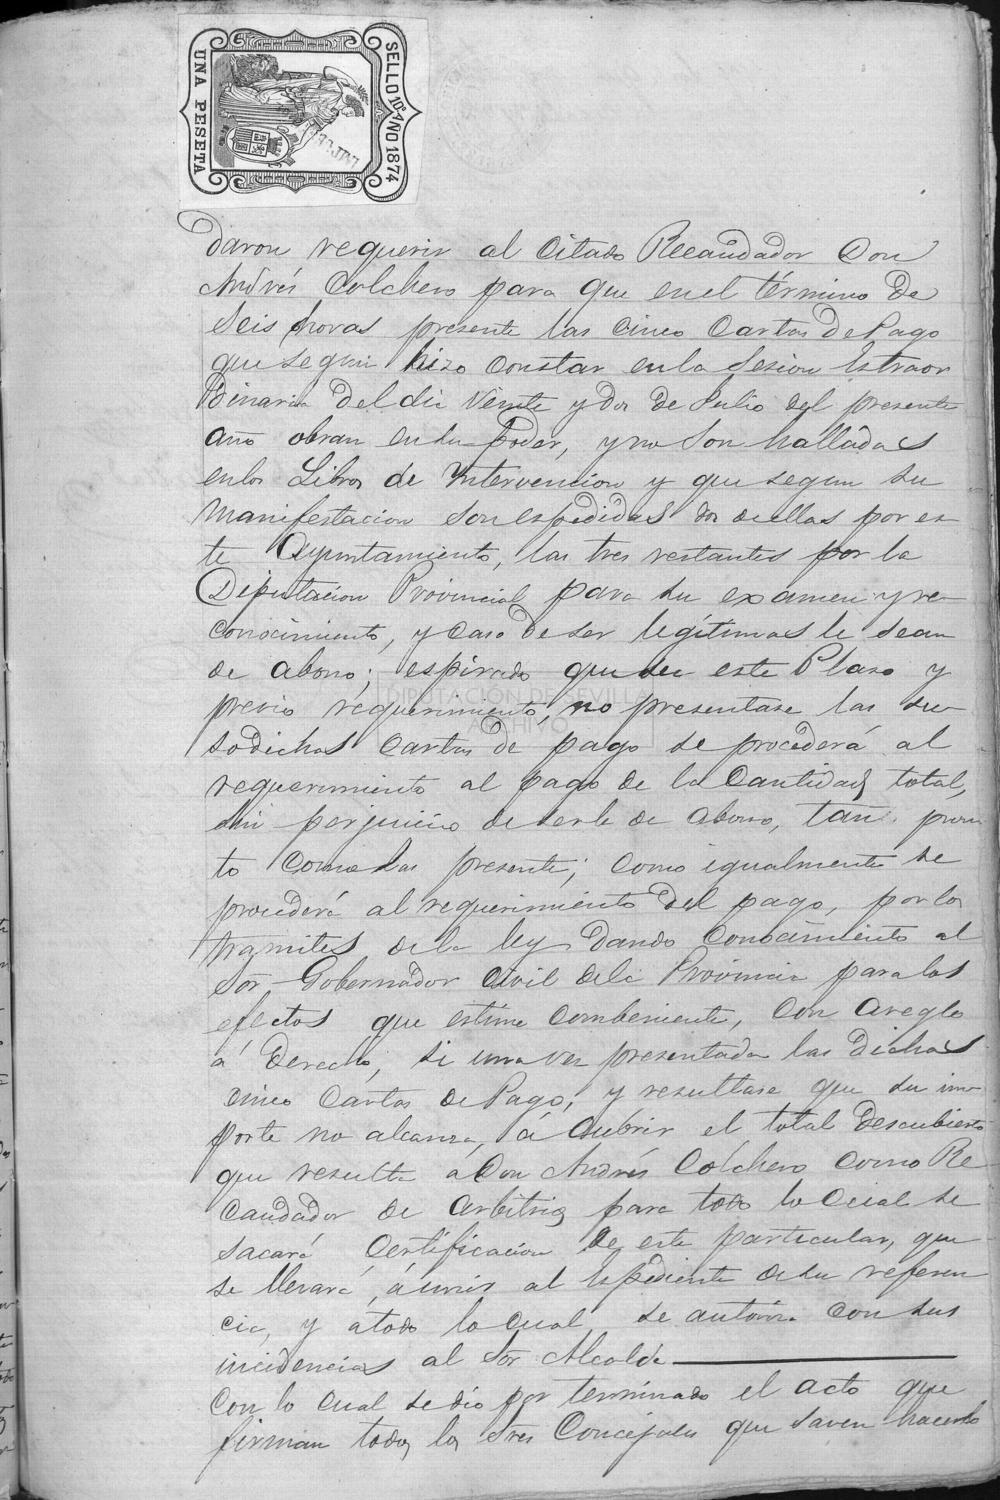 SELLO 10º AÑO 1874
UNA PESETA
daron requerir al citado Recaudador Don
Andrés Colchero para que en el término de
seis horas presente las cinco Cartas de Pago
que segun hizo constar en la sesion Estraor
dinaria del dia veinte y dos de Julio del presente
año obran en su poder, y no son halladas
en los Libros de Yntervencion y que segun su
manifestacion son espedidas dos de ellas por es
te Ayuntamiento, las tres restantes por la
Diputacion Provincial para su examen y re
conocimiento, y caso de ser legítimas le sean
de abono; espirado que sea este Plazo y
previo requerimiento, no presentase las su
sodichas cartas de pago se procederá al
requerimiento al pago de la Cantidad total,
sin perjuicio de serle de abono, tan pron
to como las presente; como igualmente se
procederá al requerimiento del pago, por los
tramites de la ley dando conocimiento al
Sor Gobernador Civil de la Provincia para los
efectos que estime combeniente, con areglo
á derecho, si una vez presentada las dichas
cinco Cartas de Pago, y resultase que su im
porte no alcanza, á cubrir el total Descubierto
que resulta á Don Andrés Colchero como Re
caudador de Arbitrios para todo lo cual se
sacará Certificacion de este particular, que
se llevará, á unir al Espediente de su referen
cia, y a todo lo cual se autoriza con sus
incidencias al Sor Alcalde
Con lo cual se dio por terminado el acto que
firman todos los Sres Concejales que saven hacerlo
DIPUTACIÓN DE SEVILLA
ARCHIVO